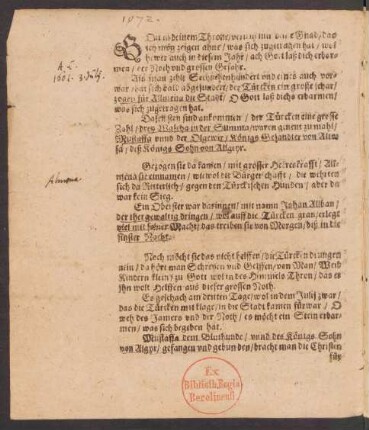 1872.
GOtt in deinem Throne/ verleih mir dein Gnad/ das
ich mög zeigen ohne/ was sich zugetragen hat/ wol
hewr auch in diesem Jahr/ ach Gott laß dich erbar-
men/ der Noth und grossen Gefahr.
A. C.
1601. 3. July.
Als man zehlt Sechzehenhundert und eins auch vor-
war/ hat sich bald abgesündert/ der Türcken ein grosse schar/
zogen für Allmena die Stadt/ O Gott laß dich erbarmen/
was sich zugetragen hat.
Daselbsten sind ankommen/ der Türcken eine grosse
Zahl/ drey Bascha in der Summa/ waren genent zumahl/
Mustaffa unnd der Olgewir/ Königs Gesandter von Alepo-
sa/ deß Königs Sohn von Allgeyr.
Almena
Gezogen sie da kamen/ mit grosser Heereskrafft/ All-
mena sie einnamen/ wiewol die Bürgerschafft/ die wehrten
sich da Ritterlich/ gegen den Türckischen Hunden/ aber da
war kein Sieg.
Ein Obrister war daringen/ mit namn Johan Alban/
der thet gewaltig dringen/ wol auff die Türcken gran/ erlegt
viel mit seiner Macht/ das treiben sie von Morgen/ biß in die
finster Nacht.
Noch möcht sie das nicht helffen/ die Türcken drungen
nein/ da hört man Schreyen und Gelffen/ von Man/ Weib
Kindern klein/ zu Gott wol in des Himmels Thron/ das er
ihn wolt helffen aus dieser grossen Noth.
Es geschach am dritten Tage/ wol in dem Julij zwar/
das die Türcken mit klage/ in die Stadt kamen fürwar/ O
weh des Jamers und der Noth/ es möcht ein Stein erbar-
men/ was sich begeben hat.
Mustaffa dem Bluthunde/ unnd des Königs Sohn
von Algyr/ gefangen und gebunden/ bracht man die Christen
für
Ex
Biblioth. Regia
Berolinensi.